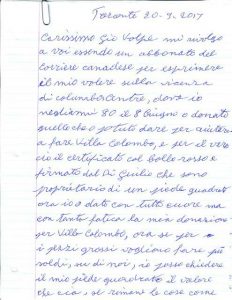 Toronto 20-9-2017
Carissimo Gio Volpe mi rivolgo
a voi essendo un abbonato del
corriere canadese per esprimere
il mio volere sulla
di columbus Centre, dove io
negli anni 80 il 8 Giugno o donato
quello che o potuto dare per aiutare
a fare Villa Colombo, e per il
cio il certificato col bollo rosso e
firmato dal Di Giulio che sono
proprietario di un piede quadrato
ora io o dato con tutto cuore ma
con tanta fatica la mia donazione
per Villa Colombo, ora se per
i pezzi grossi vogliono fare più
soldi, su di noi, io posso chiedere
il mio piede quadrato il valore
che era, se rimane le cose come